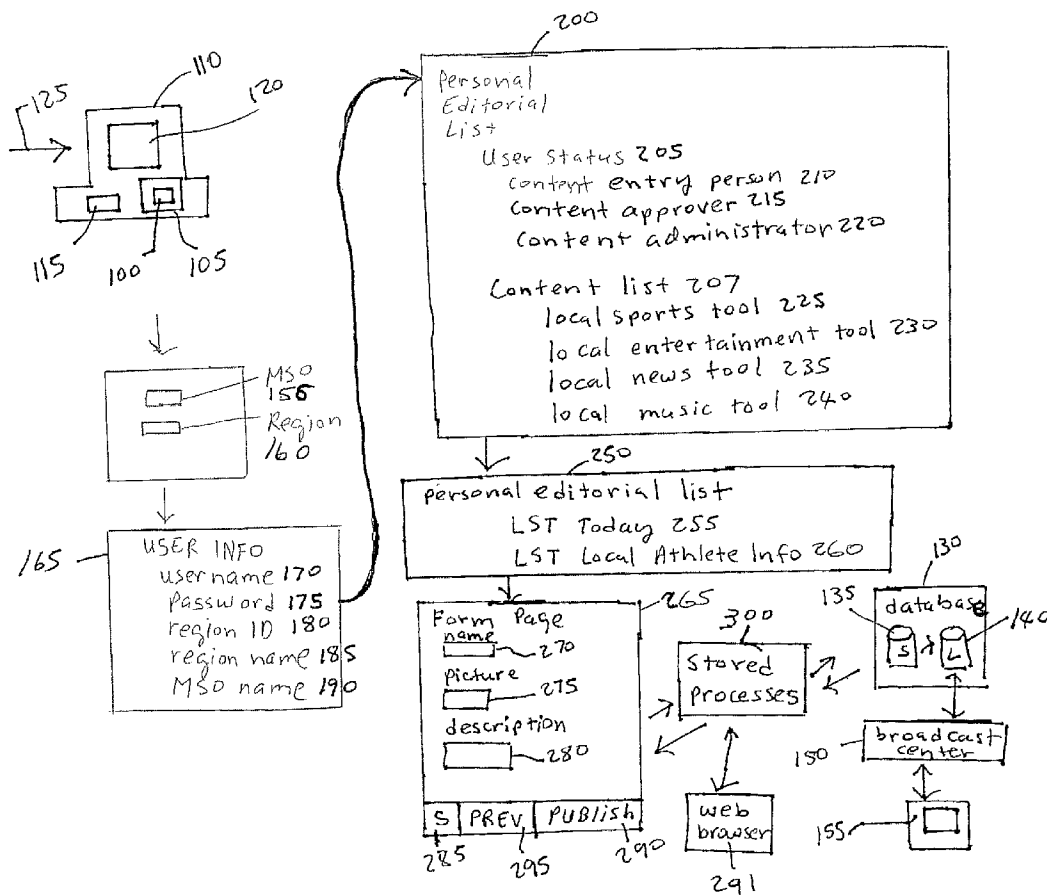 125
110
120
115
100
105
MSO
156
Region
160
165
USER INFO
username 170
Password 175
region ID 180
region name 185
MSO name 190
200
Personal
Editorial
List
User Status 205
content entry person 210
content approver 215
content administrator 220
Content list 207
local sports tool 225
local entertainment tool 230
local news tool 235
local music tool 240
250
personal editorial list
LST Today 255
LST Local Athlete Info 260
265
Form Page
name
270
picture
275
description
280
S PREV PUBlish
285
295
290
300
Stored
processes
web
browser
291
130
135
database
140
S L
150
broadcast
center
155